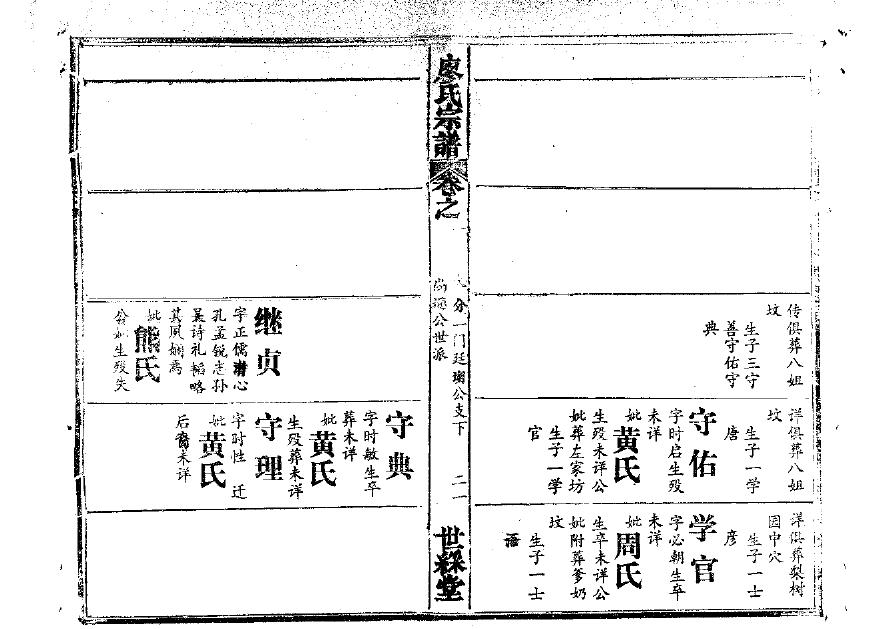 传俱葬八姐
坟
生子三守
善守佑守
典
详俱葬八姐
坟
生子一学
唐
守佑
字时启生殁
未详
妣黄氏
生殁未详公
妣葬左家坊
生子一学
官
详俱葬梨树
园中穴
生子一士
彦
学官
字必朝生卒
未详
妣周氏
生卒未详公
妣附葬爹奶
坟
生子一士
廖氏宗譜
卷之
分一门廷瑚公支下
公世派
二一
世綵堂
继贞
字正儒潜心
孔孟锐志孙
吴诗礼韬略
其夙娴焉
妣熊氏
公妣生殁失
守典
字时敏生卒
葬未详
妣黄氏
生殁葬未详
守理
字时性 迁
妣黄氏
后裔未详